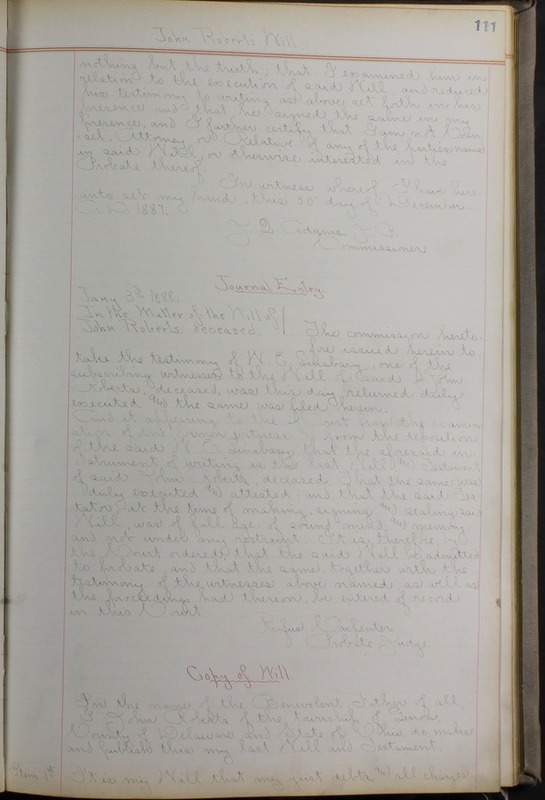 111
John Roberts Will.
nothing but the truth; that I examined him in
relation to the execution of said Will and reduced
his testimony to writing as above set forth in his
presence and that he signed the same in my
presence, and I further certify that I am not Coun-
-sel, Attorney or Relative of any of the parties named
in said Will or otherwise interested in the
Probate thereof.
In witness whereof I have here
unto set my hand, this 30 day of December
A.D. 1887.
Adams J. P.
Commissioner
Journal Entry.
Jany 3rd 1888.
In the Matter of the Will of
John Roberts. deceased. The commission hereto-
fore issued herein to
take the testimony of W. E. one of the
subscribing witnesses to the Will of said John
Roberts deceased, was this day returned duly
executed and the same was filed herein.
And it appearing to the Court from the examin
ation of the former witness & from the deposition
of the said that the aforesaid in
strument of writing is the last Will and Testament
of said John Roberts, deceased, that the same was
duly executed and attested; and that the said Tes
tator at the time of making, signing and sealing said
Will, was of full age, of sound mind and memory
and not under any restraint. It is therefore by
the Court ordered that the said Will be admitted
to probate, and that the same together with the
testimony of the witnesses above named, as well as
the proceedings had thereon, be entered of record
in this Court.
Rufus Carpenter
Probate Judge
Copy of Will
In the name of the Benevolent Father of all
I John Roberts of the township of Genoa
County of Delaware and State of Ohio do make
and publish this my last Will and Testament.
Item 1st It is my Will that my just debts and all charges